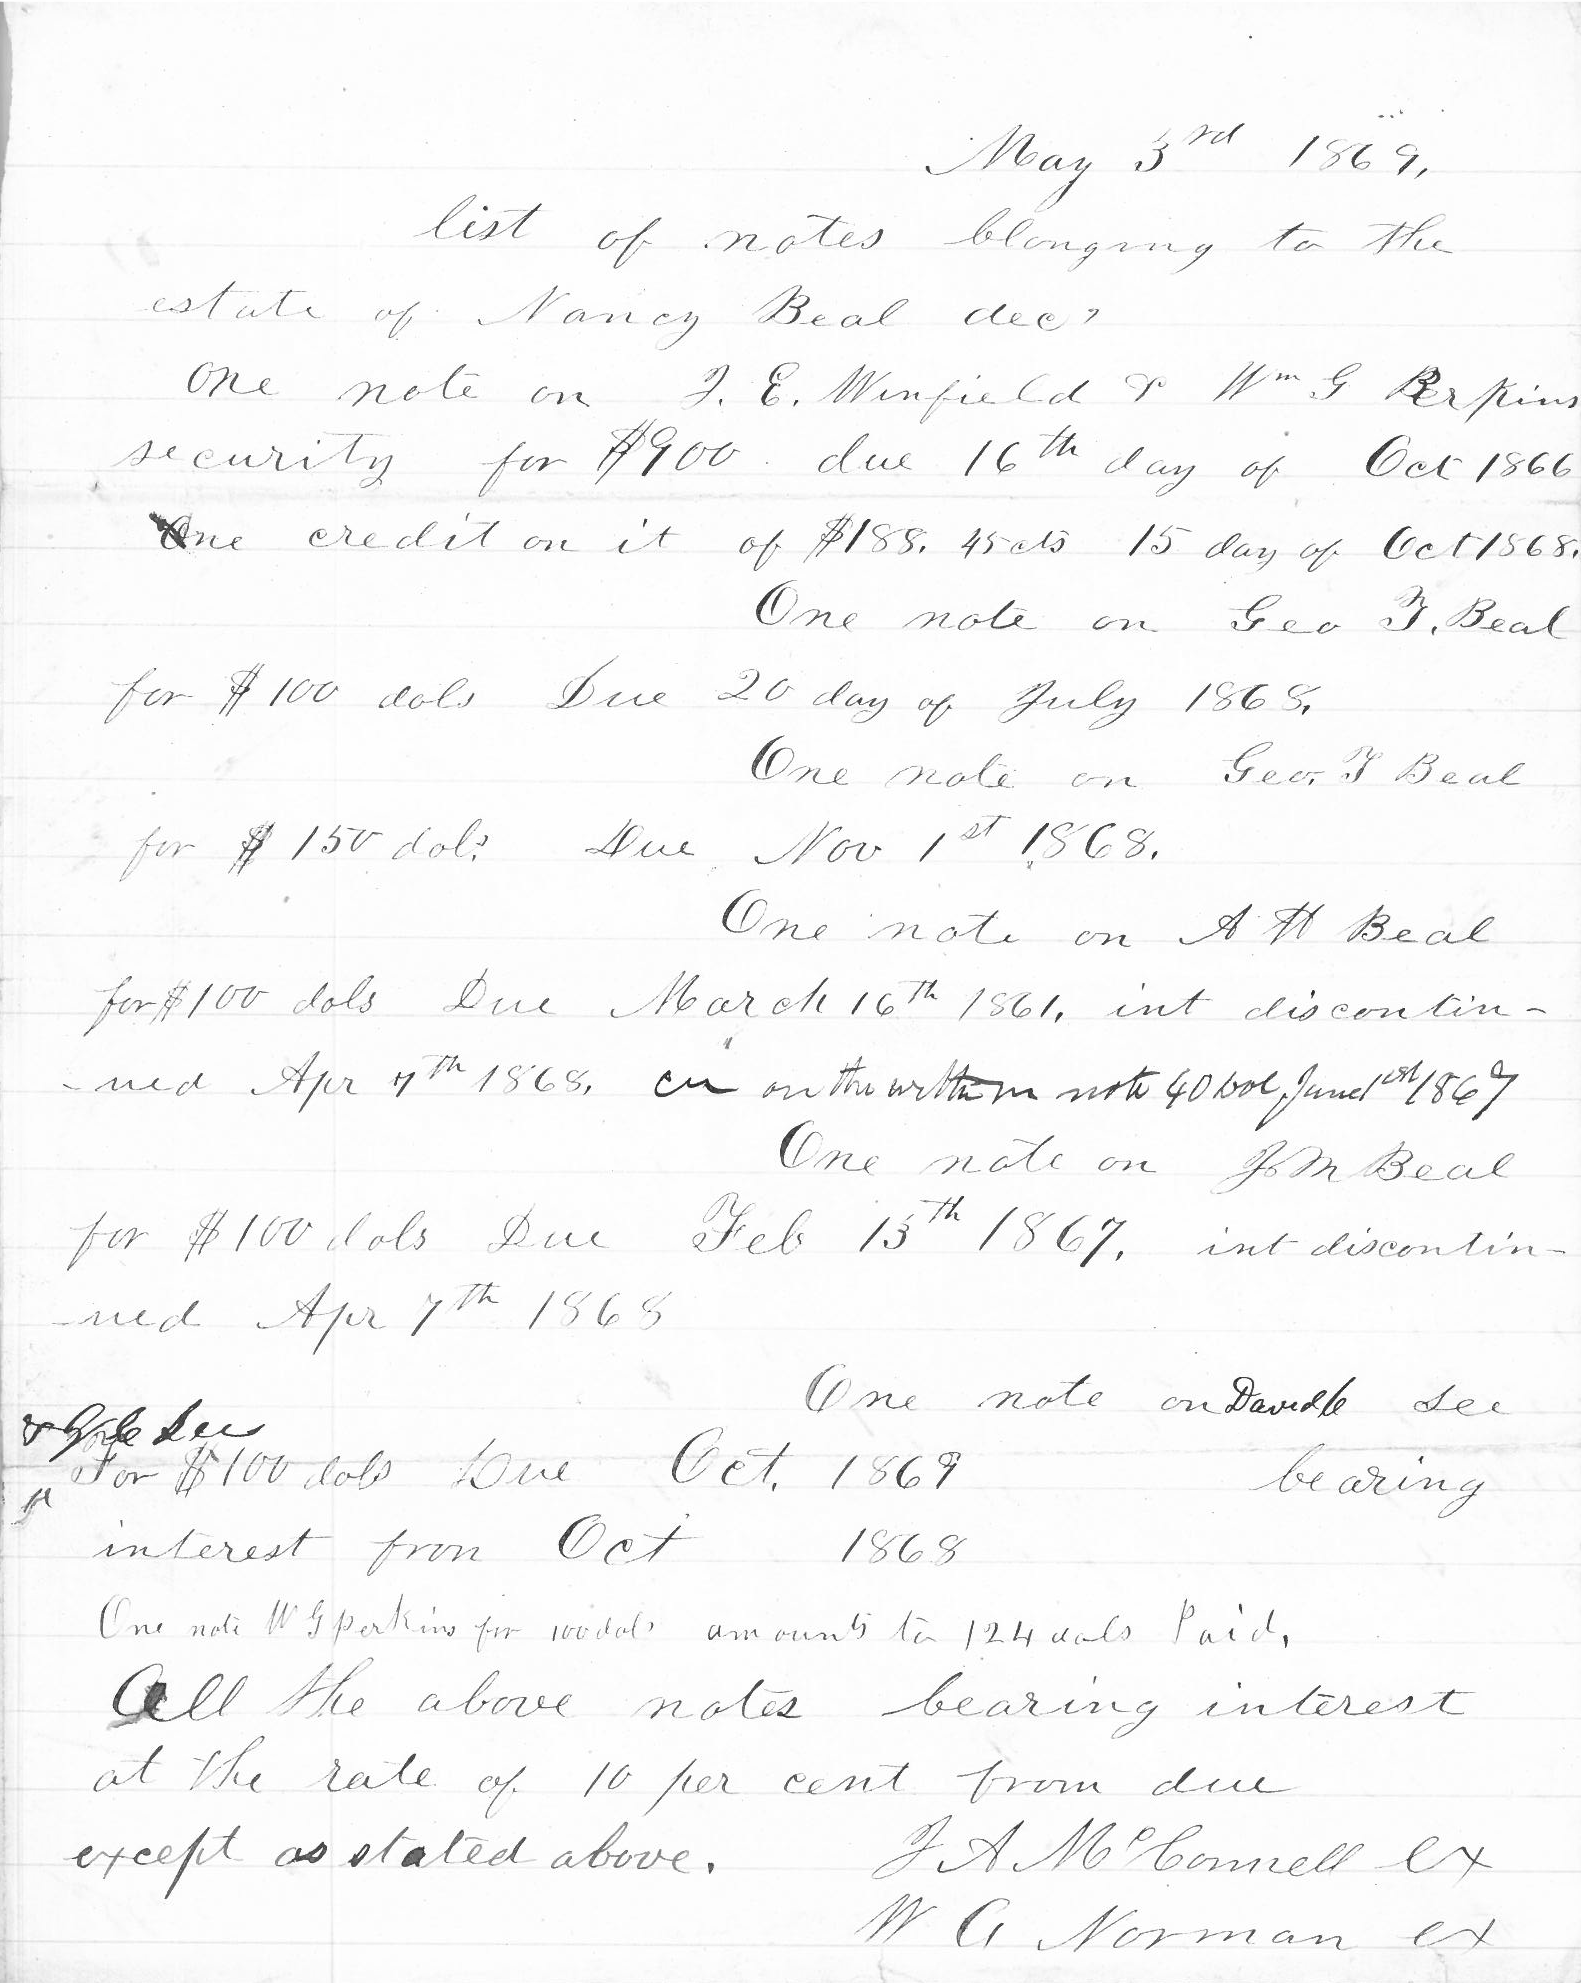 May 3rd 1869.
list of notes blonging to the
estate of Nancy Beal dec'
One note on J. E. Winfield & Wm G Perkins
security for $900 due 16th day of Oct 1866
One credit on it of $188. 45 cts 15 day of Oct 1868.
One note on Geo T. Beal
for $100 dols Due 20 day of July 1868.
One note on Geo. T Beal
for $150 dols Due Nov 1st 1868.
One note on A H Beal
for $100 dols Due March 16th 1861. int discontin-
-ued Apr 7th 1868. on the within note 40 dol June 1st 1867
One note on J M Beal
for $100 dols Due Feb 13th 1867. int discontin-
-ued Apr 7th 1868
One note on David See
& See
For $100 dols Due Oct. 1869 bearing
interest fron Oct 1868
One note W G Perkins for 100 dols amounts to 124 dols Paid.
All the above notes bearing interest
at the rate of 10 per cent from due
except as stated above. J A McConnell ex
W A Norman ex